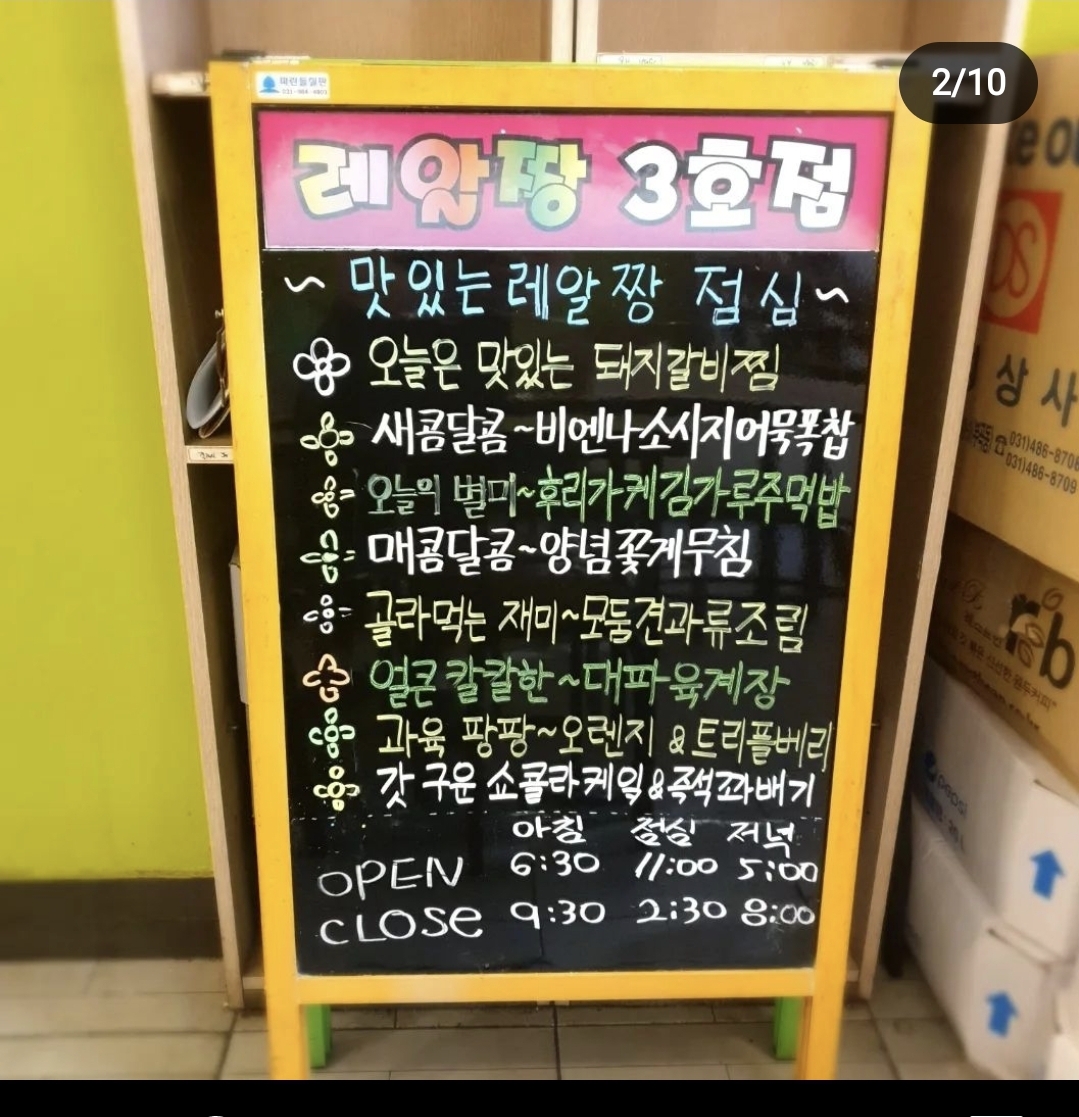 2/10
파란들칠판
레알짱 3호점
~ 맛있는레알짱 점심~
오늘은 맛있는 돼지갈비찜
새콤달콤~비엔나소시지어묵폭찹
오늘의 별미~후리가케김가루주먹밥
매콤달콤~양념꽃게무침
골라먹는 재미~모둠견과류조림
얼큰칼칼한~대파육계장
과육 팡팡~오렌지 & 트리플베리
갓 구운 쇼콜라케잌&즉석꽈배기
아침 점심 저녁
OPEN 6:30 11:00 5:00
CLOSE 9:30 2:30 8:00
상사
031)486-8708
031)486-8709
pepsi